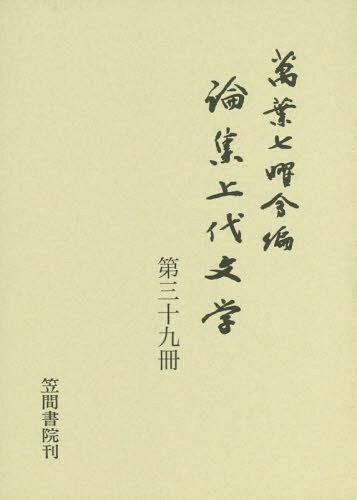 萬葉七曜會編
論集上代文学
第三十九冊
笠間書院刊